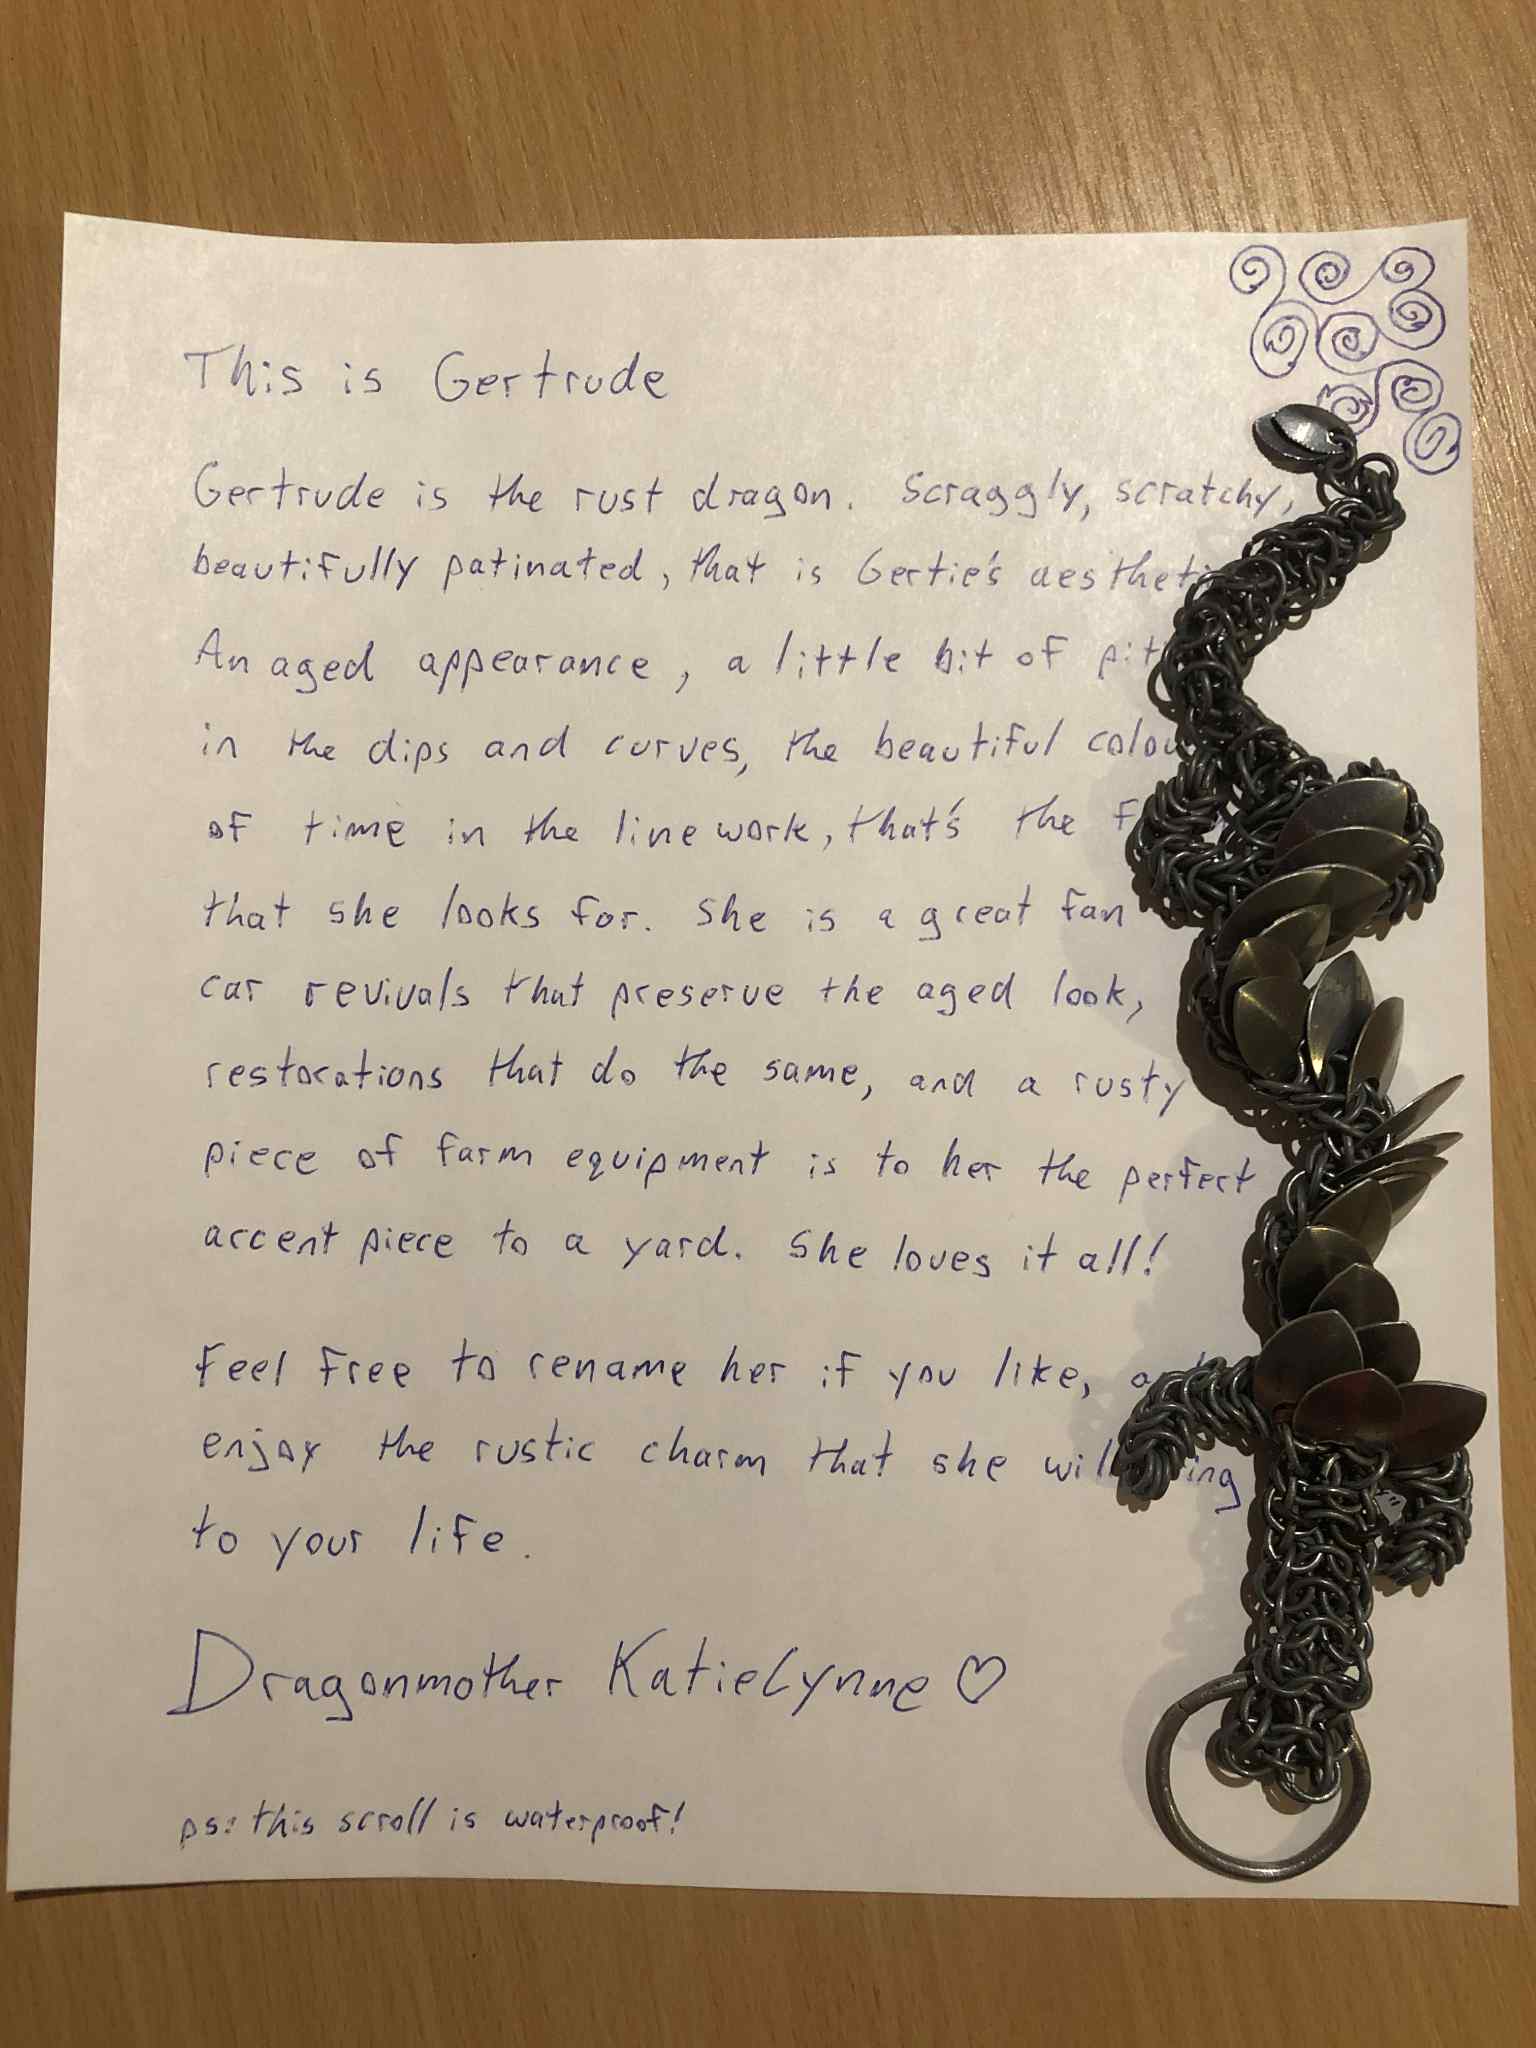 This is Gertrude
Gertrude is the rust dragon. Scraggly, scratchy,
beautifully patinated, that is Gertie's
An aged appearance, a little bit of
in the dips and curves, the beautiful
of time in the line work, that's the
that she looks for. She is a great fan
car revivals that preserve the aged look,
restorations that do the same, and a rusty
piece of farm equipment is to her the perfect
accent piece to a yard. She loves it all!
Feel free to rename her if you like,
enjoy the rustic charm that she will
to your life.
Dragonmother KatieLynne ♡
ps: this scroll is waterproof!